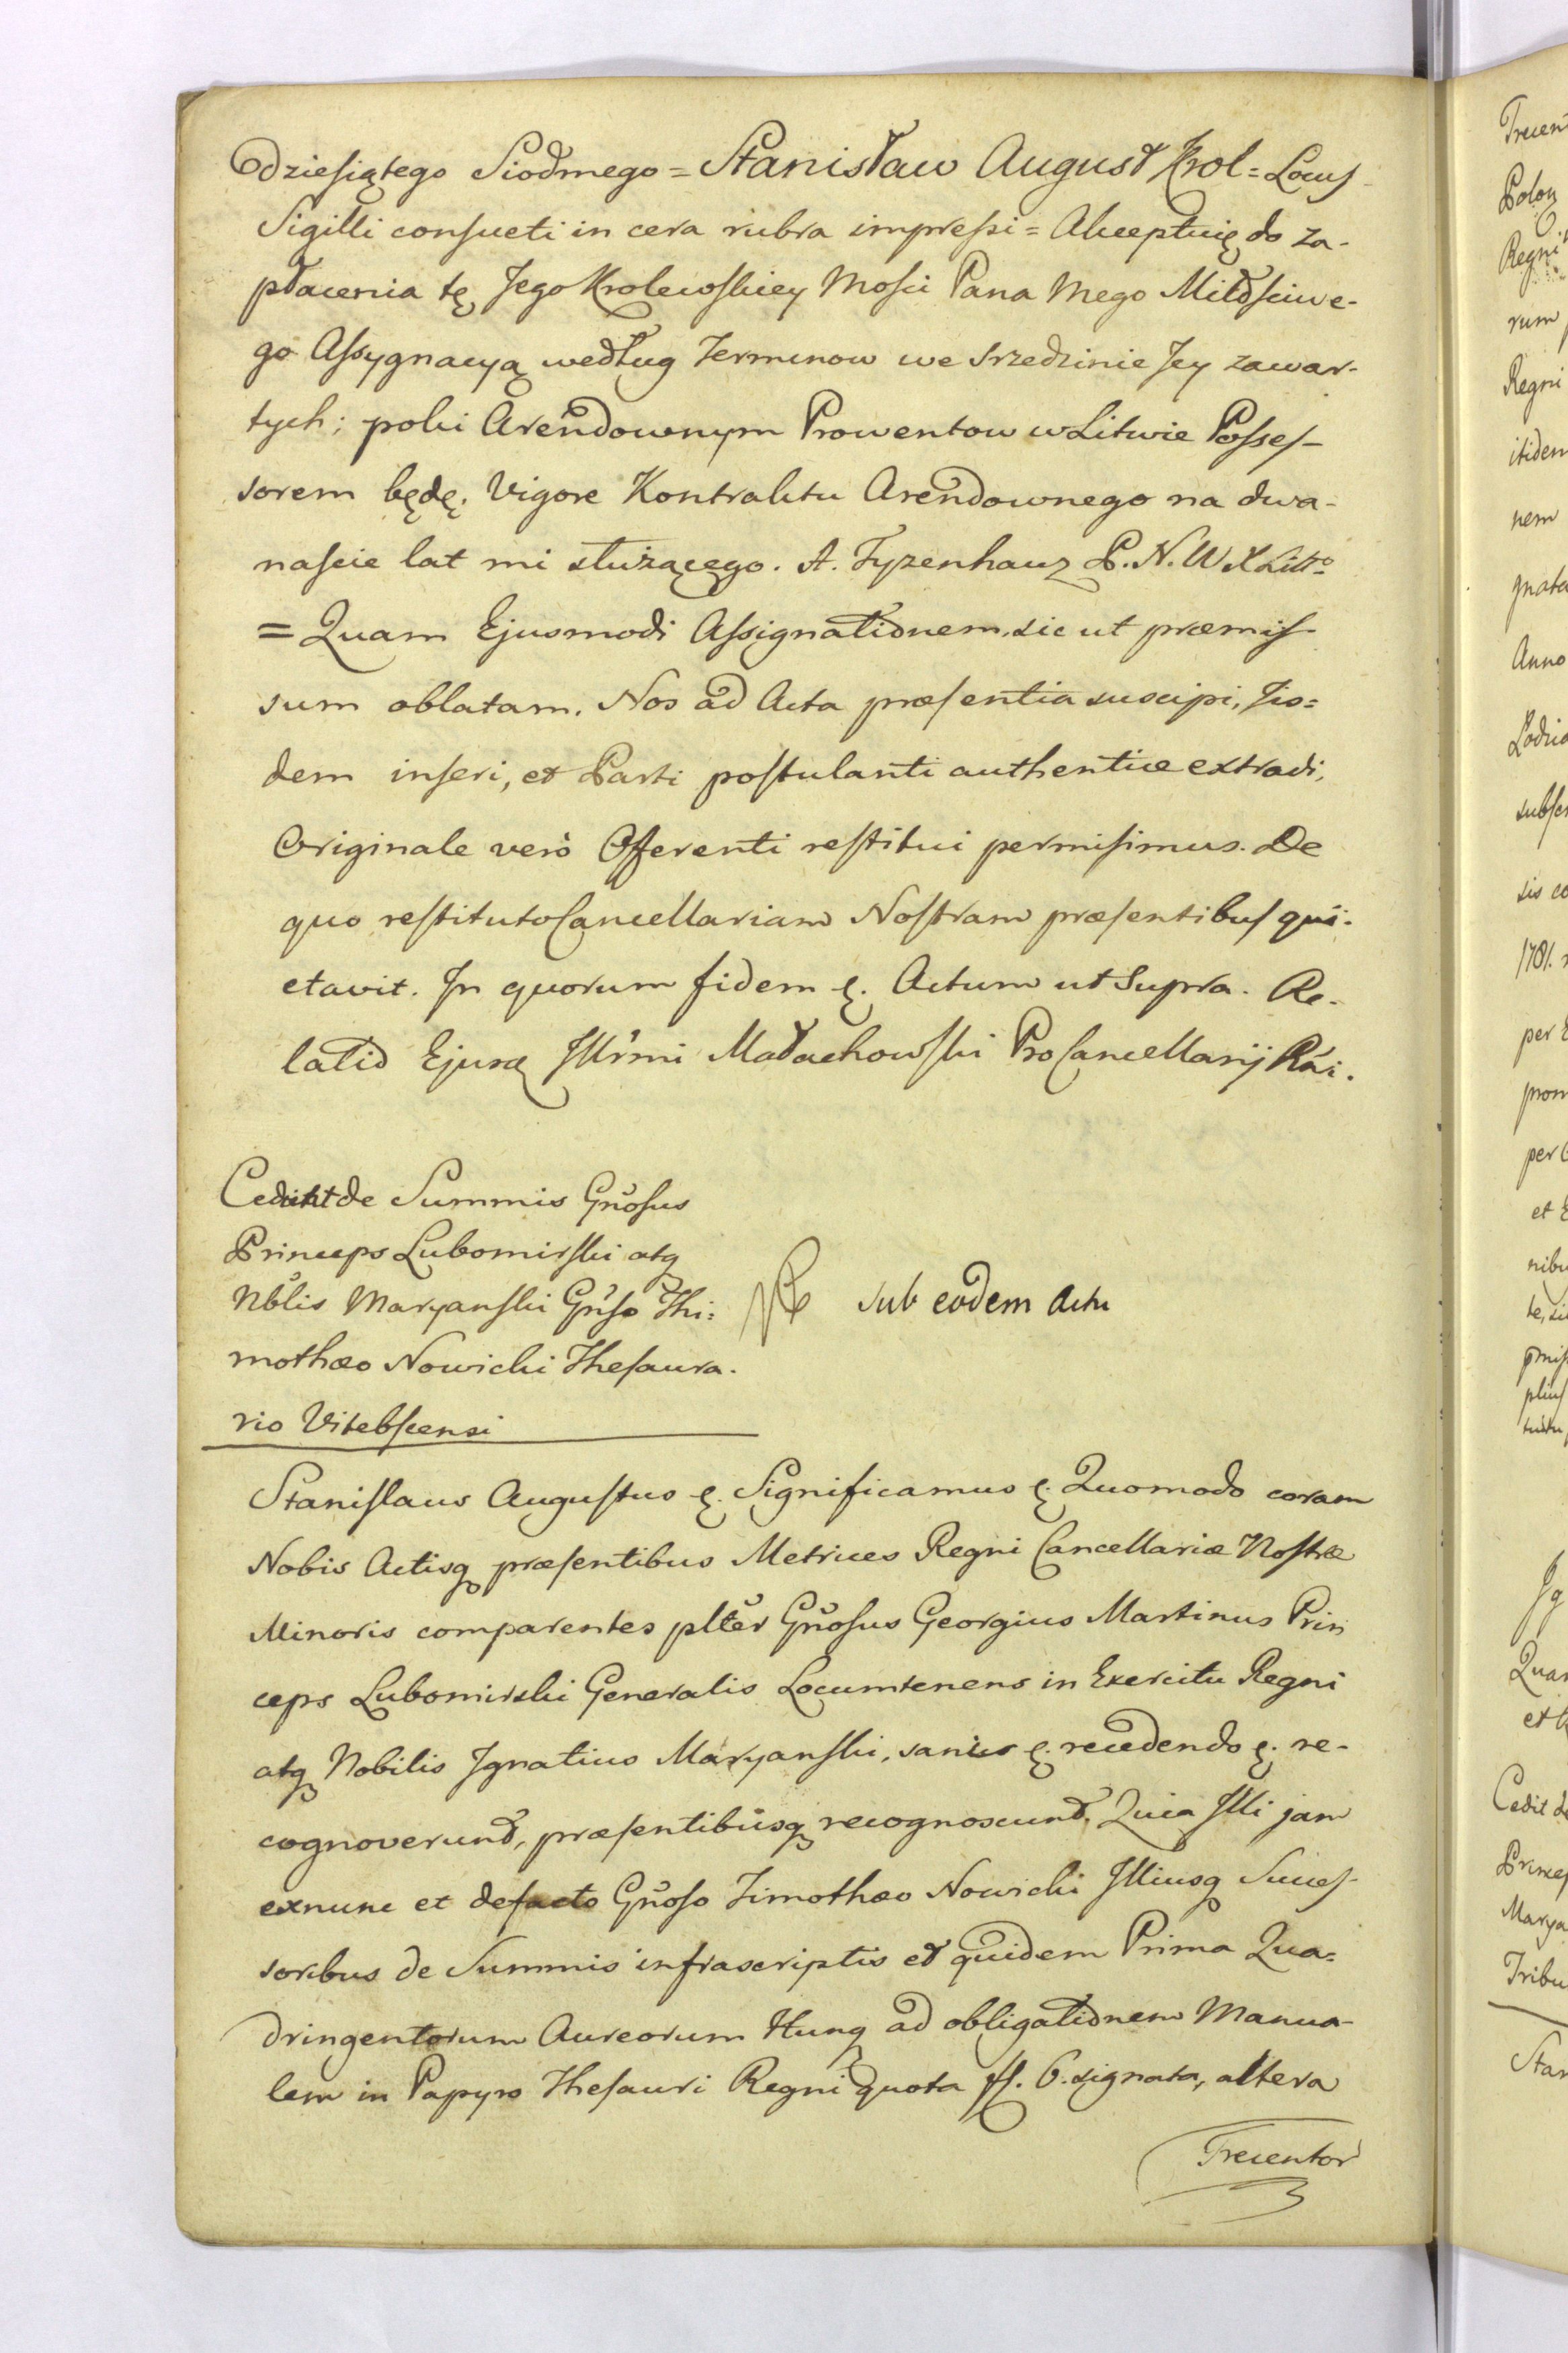 dziesiątego Siodmego = Stanisław August Krol = Locus
Sigilli consueti in cera rubra impressi = Akceptuię do za-
płacenia tę Jego Krolewskiey Mosci Pana Mego Miłosciwe-
go Assygnacyą według Terminow we srzedzinie Jey zawar-
tych; poki Arendownym Prowentow w Litwie Posses-
sorem będę, Vigore Kontraktu Arendownego na dwa-
nascie lat mi służącego. A. Tyzenhauz P. N. W X Litto
= Quam Ejusmodi Assignationem, sic ut præmis-
sum oblatam, Nos ad Acta præsentia suscipi, Iis=
dem inseri, et Parti postulanti authentice extradi,
Originale verò Offerenti restitui permisimus. De
quo restituto Cancellariam Nostram præsentibus qui-
etavit. In quorum fidem &. Actum ut Supra. Re-
latio Ejusq Illrmi Małachowski ProCancellarij Rni.
Cedunt de Summis Gnosus
Princeps Lubomirski atq
Nblis Maryanski Gnso Thi=
mothæo Nowicki Thesaura-
rio Vitebscensi
sub eodem Actu
Stanislaus Augustus &. Significamus &. Quomodo coram
Nobis Actisq præsentibus Metrices Regni Cancellariæ Nostræ
Minoris comparentes plter Gnosus Georgius Martinus Prin
ceps Lubomirski Generalis Locumtenens in Exercitu Regni
atq Nobilis Ignatius Maryanski, sanies &. recedendo &. re-
cognoverunt, præsentibusq recognoscunt, Quia Illi jam
exnunc et defacto Gnoso Timothæo Nowicki Illiusq Succes-
soribus de Summis infrascriptis et quidem Prima Qua=
dringentorum Aureorum Hung ad obligationem Manua-
lem in Papyro Thesauri Regni quota fl. 6. signata, altera
Trecentor